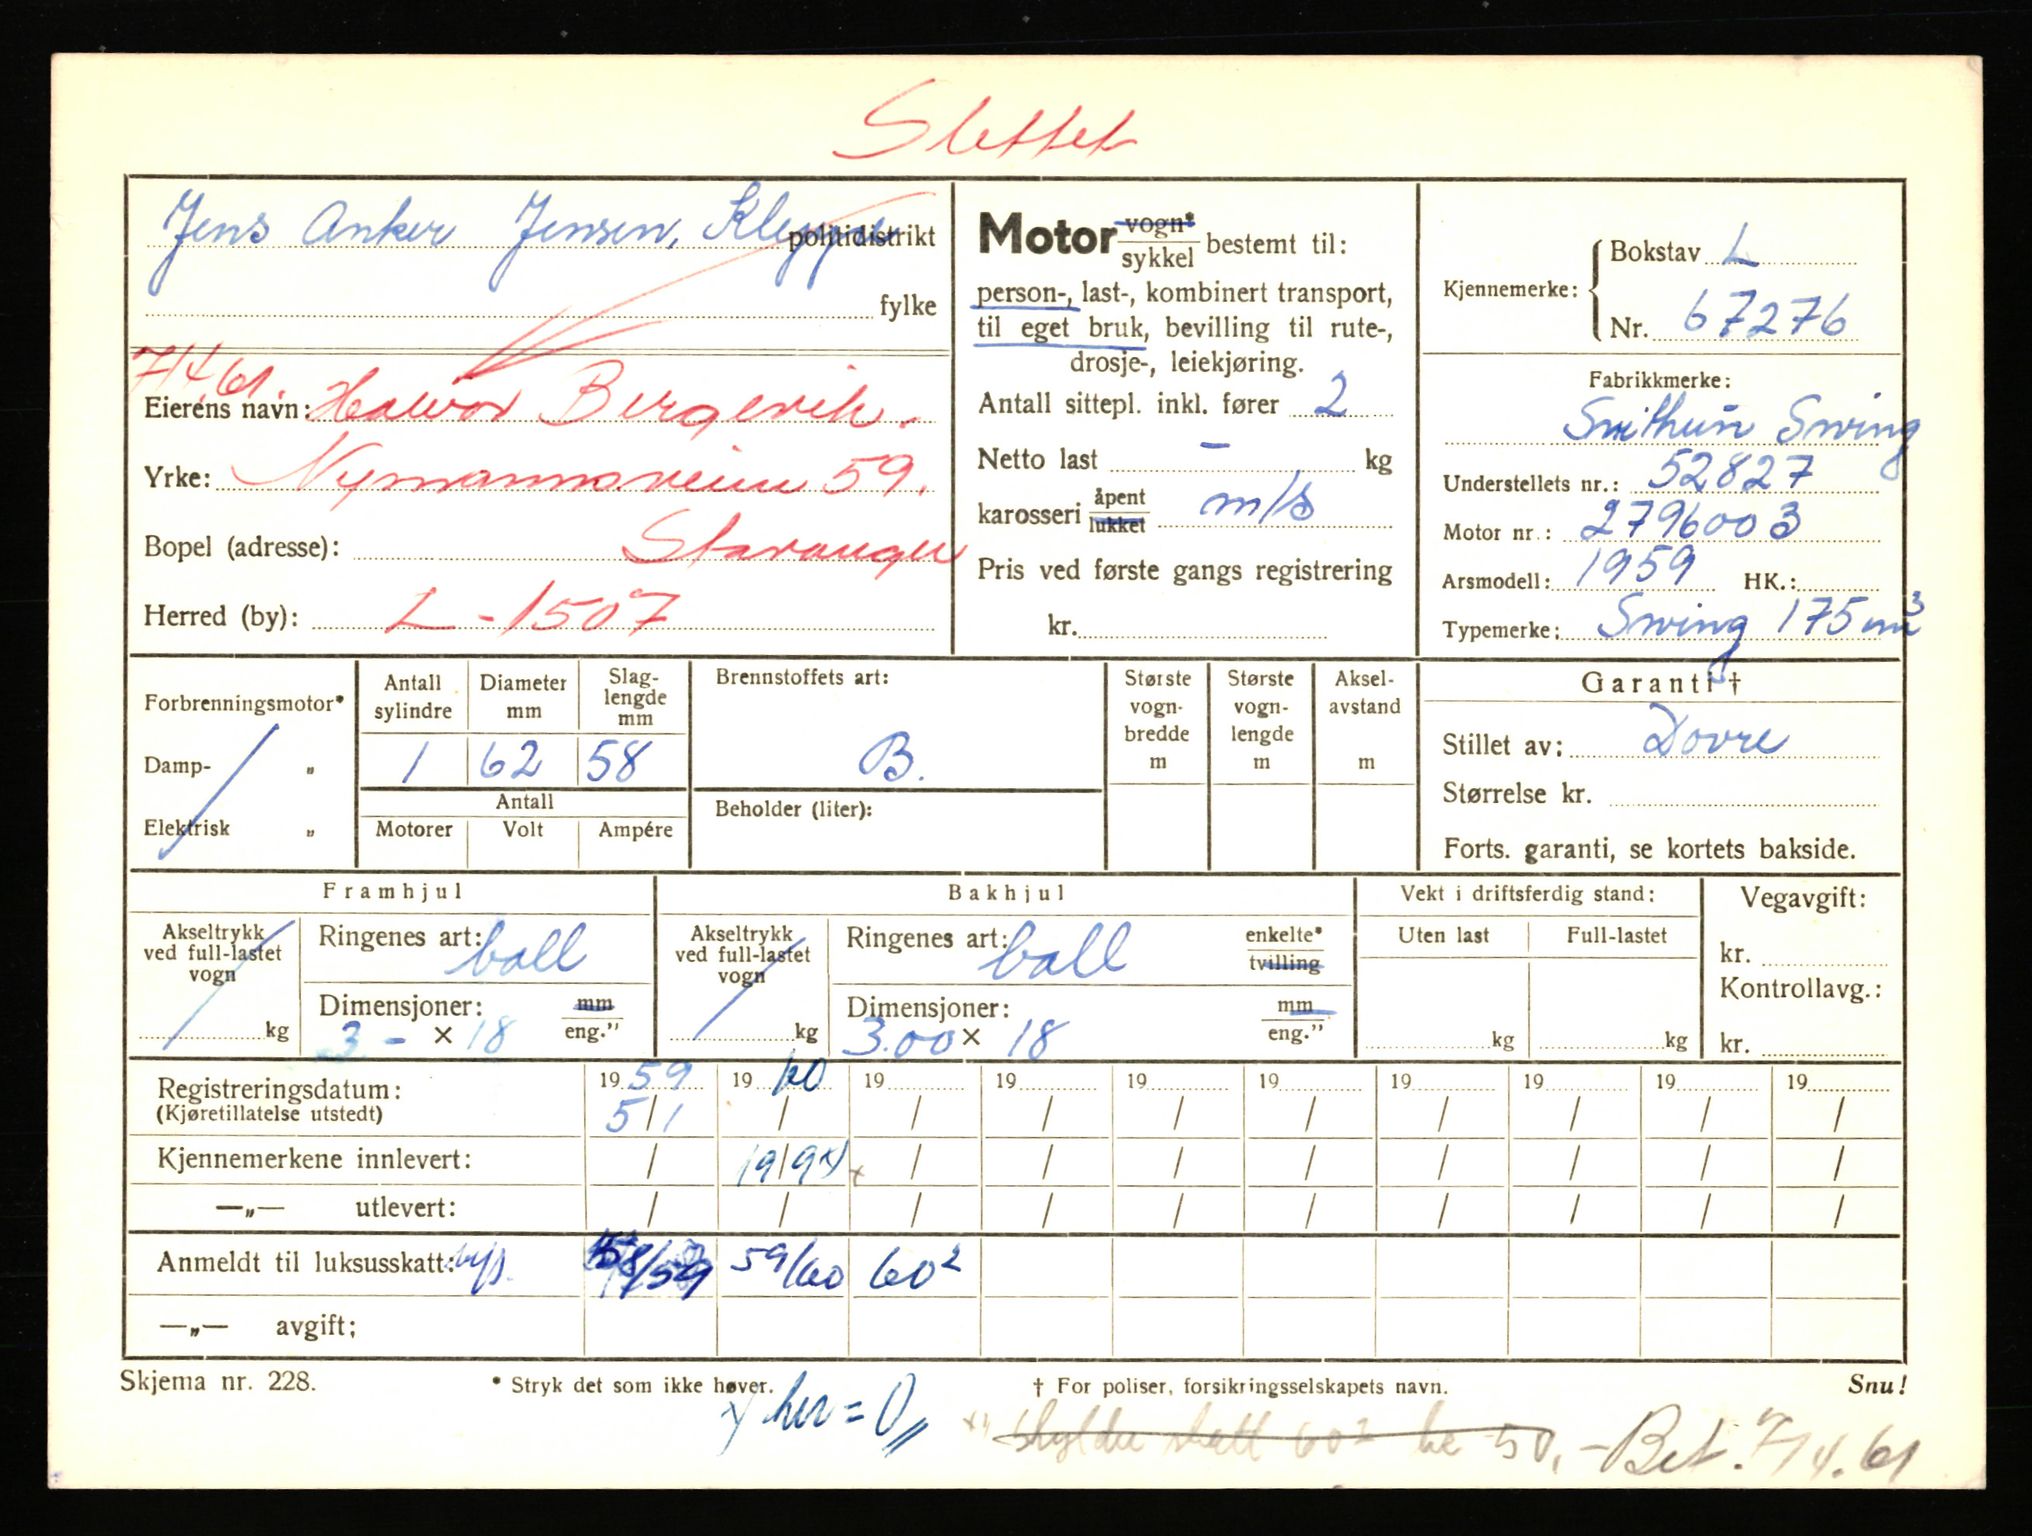 Slettet
Jens Anker Jensen, Kleppe politidistrikt
fylke
7/4.61.
Eierens navn: Halvor Bergevik.
Yrke: Nymannsveien 59.
Bopel (adresse): Stavanger
Herred (by): L-1507
Motor vogn* sykkel bestemt til:
person-, last-, kombinert transport,
til eget bruk, bevilling til rute-,
drosje-, leiekjøring.
Antall sittepl. inkl. fører 2
Netto last - kg
karosseri åpent lukket m/s
Pris ved første gangs registrering
kr.
Kjennemerke: Bokstav L
Nr. 67276
Fabrikkmerke:
Svithun Swing
Understellets nr.: 52827
Motor nr.: 2796003
Arsmodell: 1959 HK.:
Typemerke: Swing 175 cm3
Forbrenningsmotor*
Damp- „
Elektrisk „
Antall sylindre Diameter mm Slag-lengde mm
1 62 58
Antall
Motorer Volt Ampére
Brennstoffets art:
B.
Beholder (liter):
Største vogn-bredde m
Største vogn-lengde m
Aksel-avstand m
Garanti †
Stillet av: Dovre
Størrelse kr.
Forts. garanti, se kortets bakside.
Framhjul
Akseltrykk ved full-lastet vogn
kg
Ringenes art: ball
Dimensjoner: mm
3 - × 18 eng."
Bakhjul
Akseltrykk ved full-lastet vogn
kg
Ringenes art: ball enkelte* tvilling
Dimensjoner: mm
3.00 × 18 eng."
Vekt i driftsferdig stand:
Uten last Full-lastet
kg kg
Vegavgift:
kr.
Kontrollavg.:
kr.
Registreringsdatum: 19 59 19 60 19 19 19 19 19 19 19 19
(Kjøretillatelse utstedt) 5/1 / / / / / / / / /
Kjennemerkene innlevert: / 19/9 x) / / / / / / / /
—„— utlevert: / / / / / / / / / /
Anmeldt til luksusskatt: 58/59 59/60 60²
—„— avgift;
Skjema nr. 228. * Stryk det som ikke høver. † For poliser, forsikringsselskapets navn. Snu!
x) her = 0,, x) skylder skatt 60² kr 50,- Bet. 7/4.61